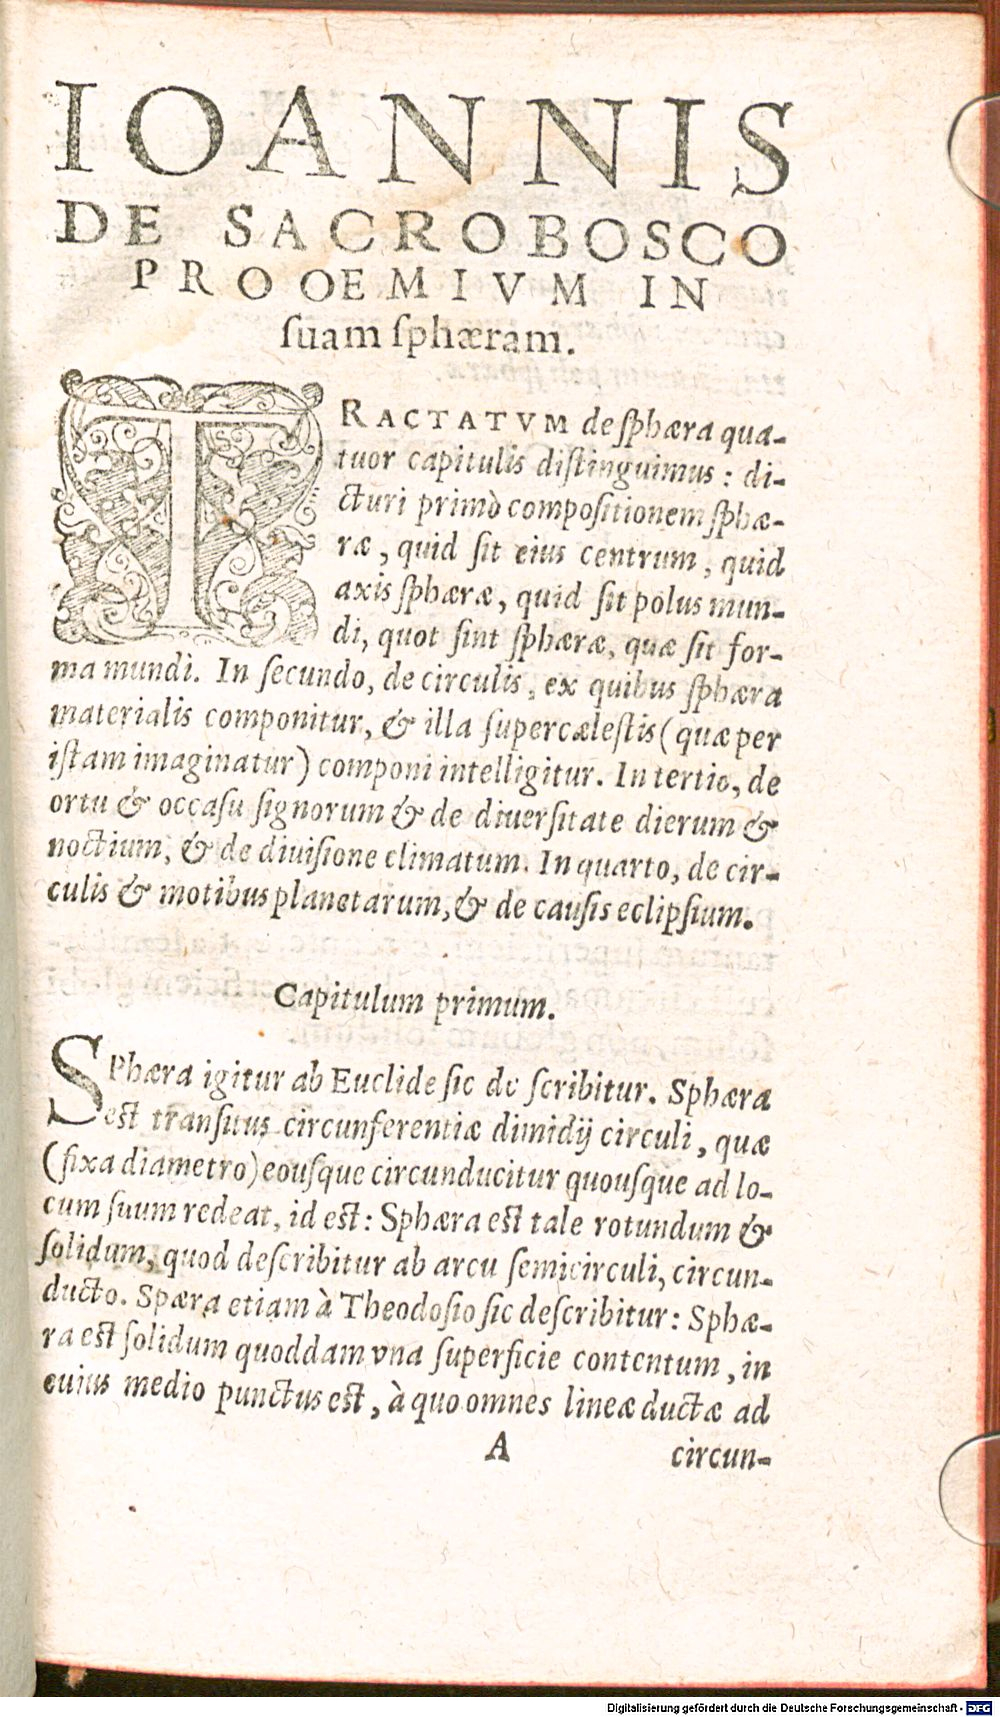 IOANNIS
DE SACROBOSCO
PROOEMIVM IN
suam sphæram.
TRACTATVM de sphæra qua-
tuor capitulis distinguimus: di-
cturi primò compositionem sphæ-
ræ, quid sit eius centrum, quid
axis sphæræ, quid sit polus mun-
di, quot sint sphæræ, quæ sit for-
ma mundi. In secundo, de circulis, ex quibus sphæra
materialis componitur, & illa supercælestis (quæ per
istam imaginatur) componi intelligitur. In tertio, de
ortu & occasu signorum & de diuersitate dierum &
noctium, & de diuisione climatum. In quarto, de cir-
culis & motibus planetarum, & de causis eclipsium.
Capitulum primum.
SPhæra igitur ab Euclide sic de scribitur. Sphæra
est transitus circunferentiæ dimidij circuli, quæ
(fixa diametro) eousque circunducitur quousque ad lo-
cum suum redeat, id est: Sphæra est tale rotundum &
solidum, quod describitur ab arcu semicirculi, circun-
ducto. Spæra etiam à Theodosio sic describitur: Sphæ-
ra est solidum quoddam vna superficie contentum, in
cuius medio punctus est, à quo omnes lineæ ductæ ad
A circun-
Digitalisierung gefördert durch die Deutsche Forschungsgemeinschaft - DFG